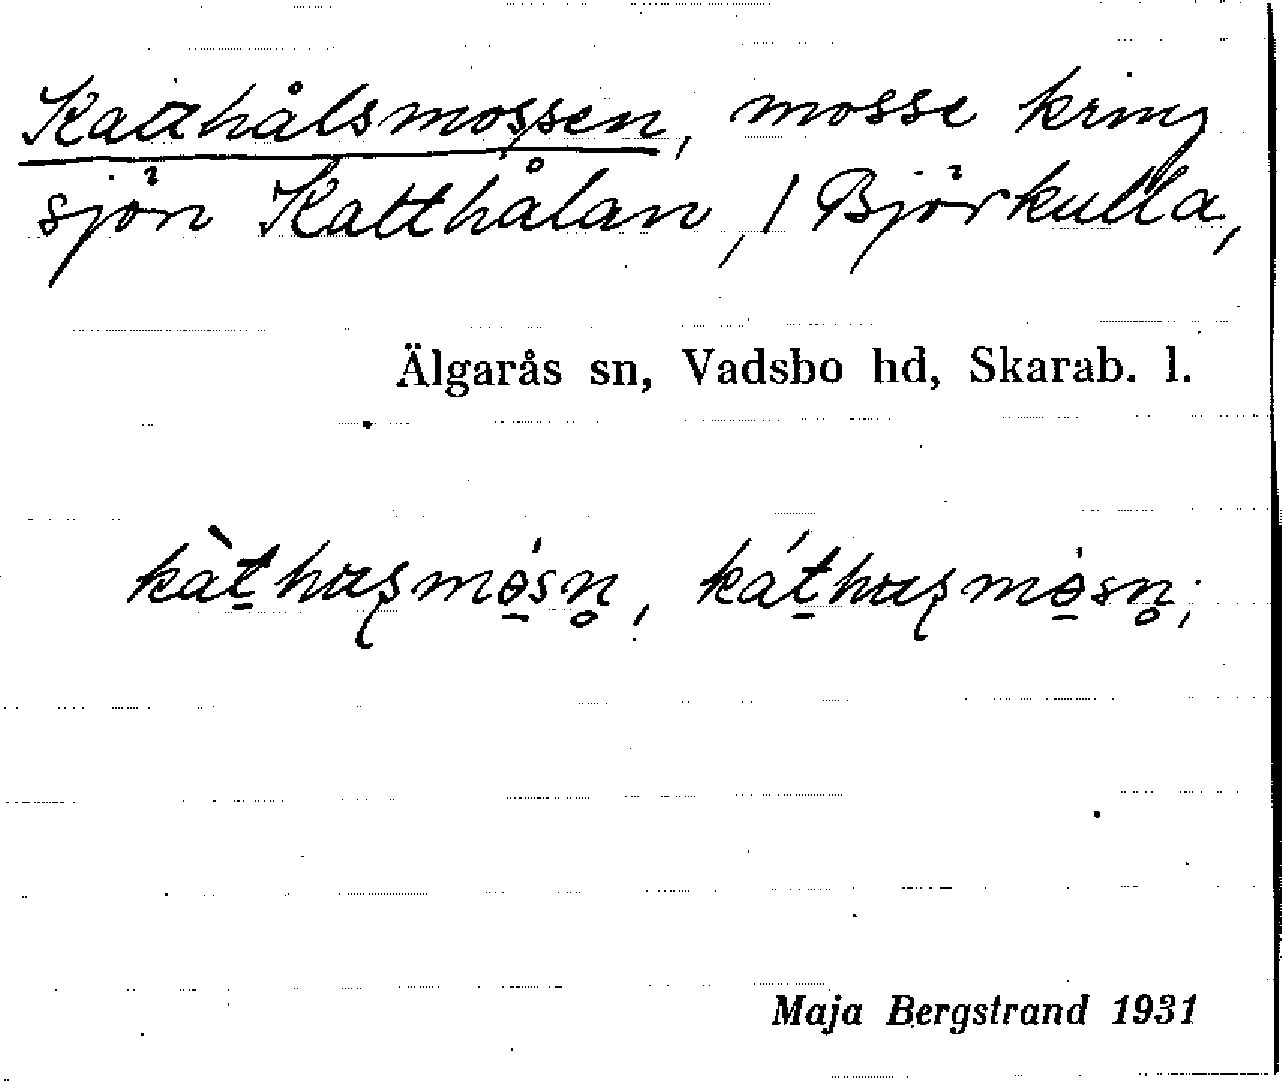 Katthålsmossen, mosse kring
sjön Katthålan, / Björkulla,
Älgarås sn, Vadsbo hd, Skarab. l.
Maja Bergstrand 1931